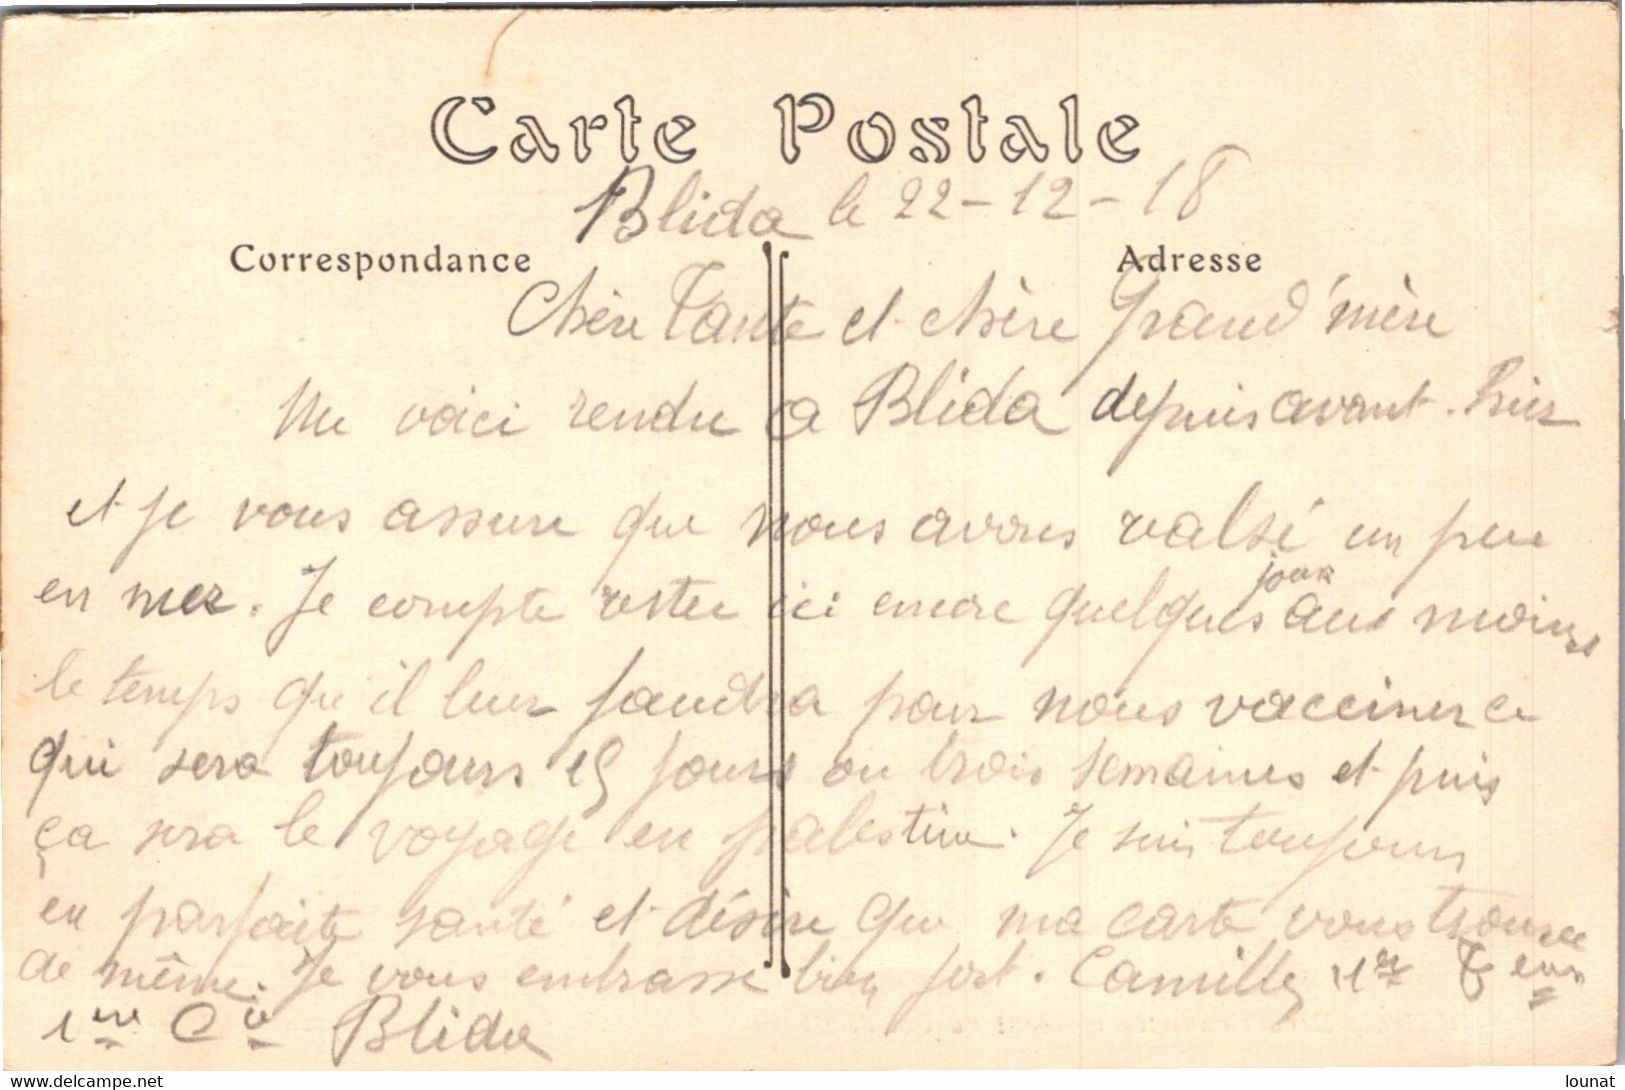 Carte Postale
Blida le 22-12-18
Correspondance
Adresse
Chère Tante et chère Grand'mère
Me voici rendu a Blida depuis avant-hier
et je vous assure que nous avons valsé un peu
en mer. Je compte rester ici encore quelques jours au moins
le temps qu'il leur faudra pour nous vacciner ce
qui sera toujours 15 jours ou trois semaines et puis
ça sera le voyage en palestine. Je suis toujours
en parfaite santé et désire que ma carte vous trouve
de même. Je vous embrasse bien fort. Camille 1er
1ere Cie Blida
www.delcampe.net
lounat